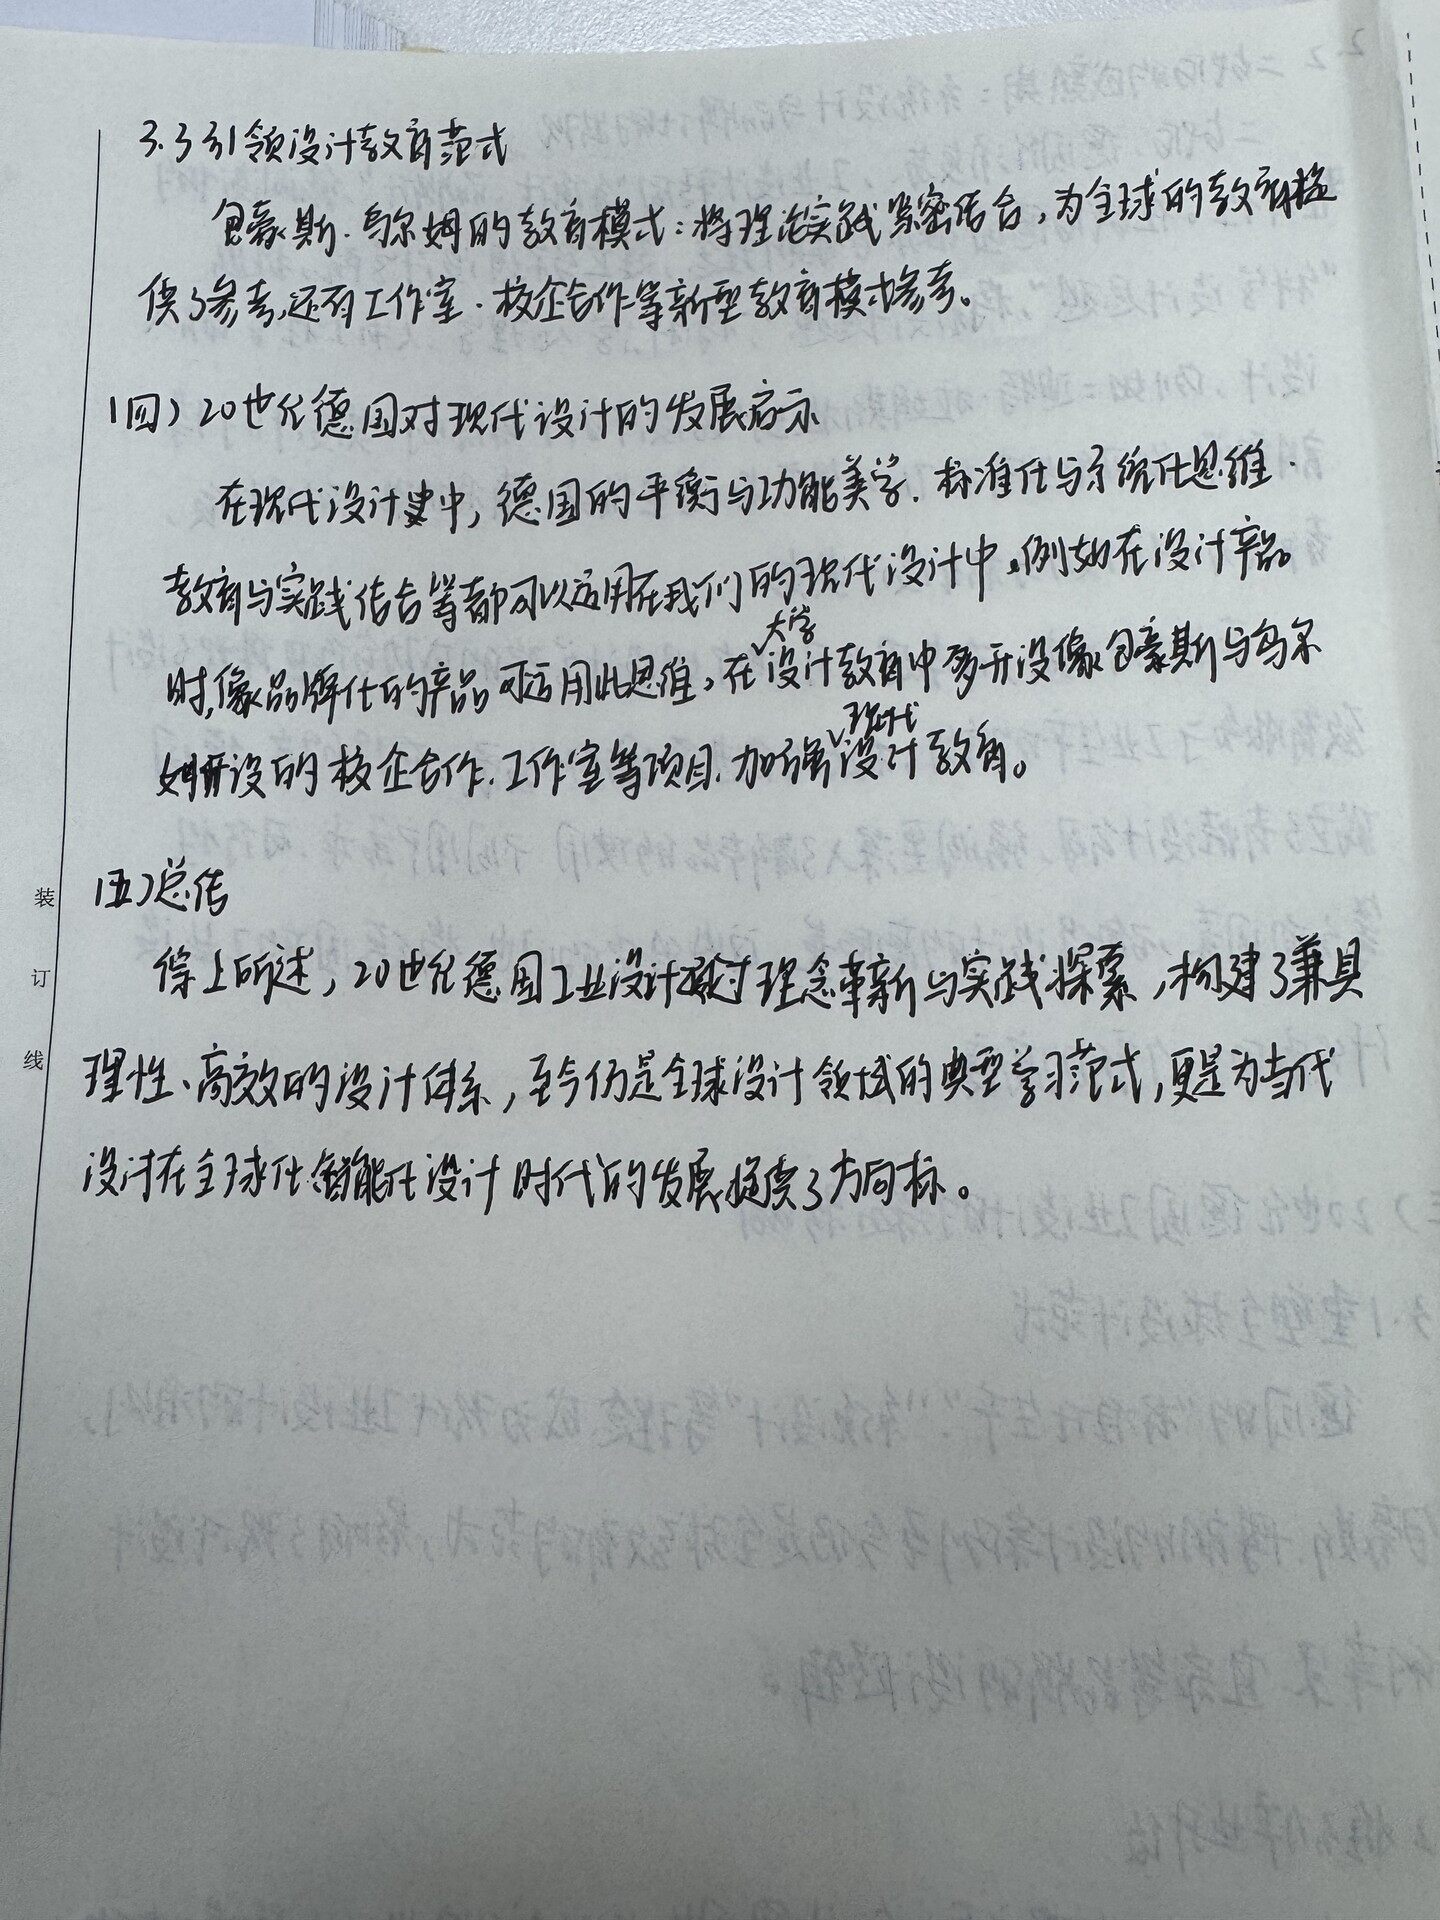 3.3引领设计教育范式
包豪斯、乌尔姆的教育模式：将理论实践紧密结合，为全球的教育提
供了参考，还有工作室、校企合作等新型教育模式参考。
（四）20世纪德国对现代设计的发展启示
在现代设计史中，德国的平衡与功能美学、标准化与系统化思维、
教育与实践结合等都可以运用在我们的现代设计中。例如在设计产品
时，像品牌化的产品可运用此思维，在大学设计教育中多开设像包豪斯与乌尔
姆开设的校企合作、工作室等项目，加强现代设计教育。
（五）总结
综上所述，20世纪德国工业设计通过理念革新与实践探索，构建了兼具
理性、高效的设计体系，至今仍是全球设计领域的典型学习范式，更是为当代
设计在全球化、智能化设计时代的发展提供了方向标。
装
订
线